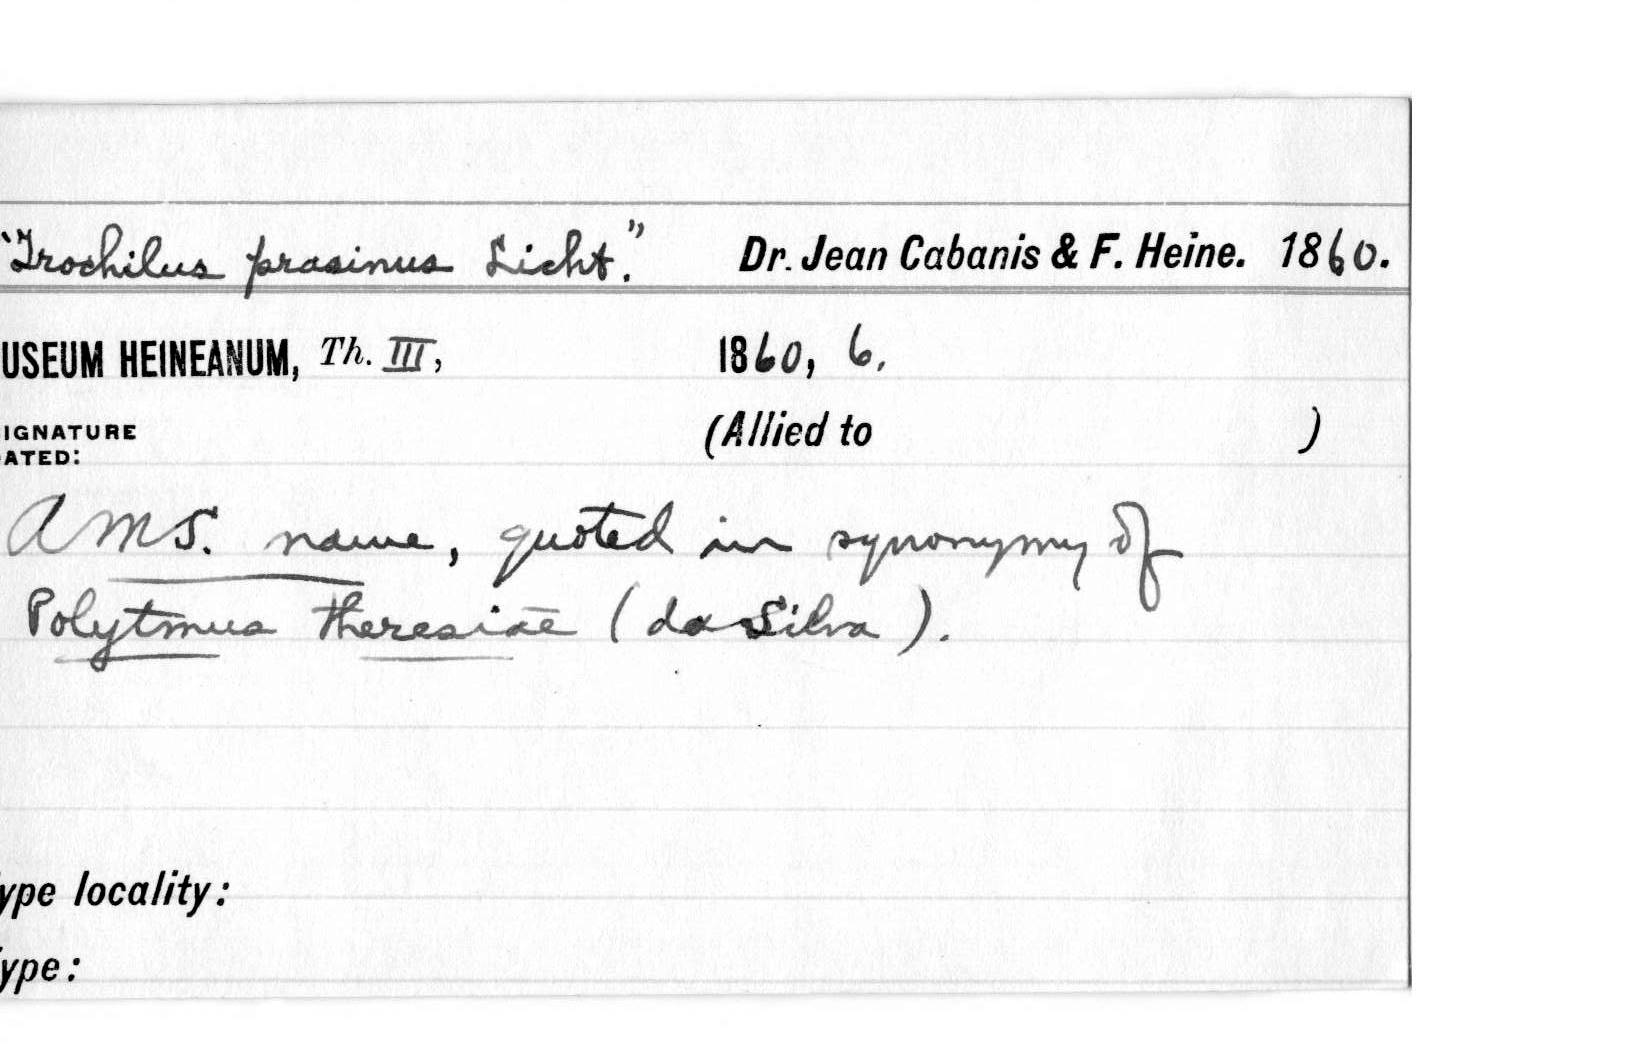 "Trochilus prasinus Licht." Dr. Jean Cabanis & F. Heine. 1860.
USEUM HEINEANUM, Th. III, 1860, 6.
IGNATURE
ATED:
(Allied to )
A MS. name, quoted in synonymy of
Polytmus theresiae (da Silva).
ype locality:
ype: